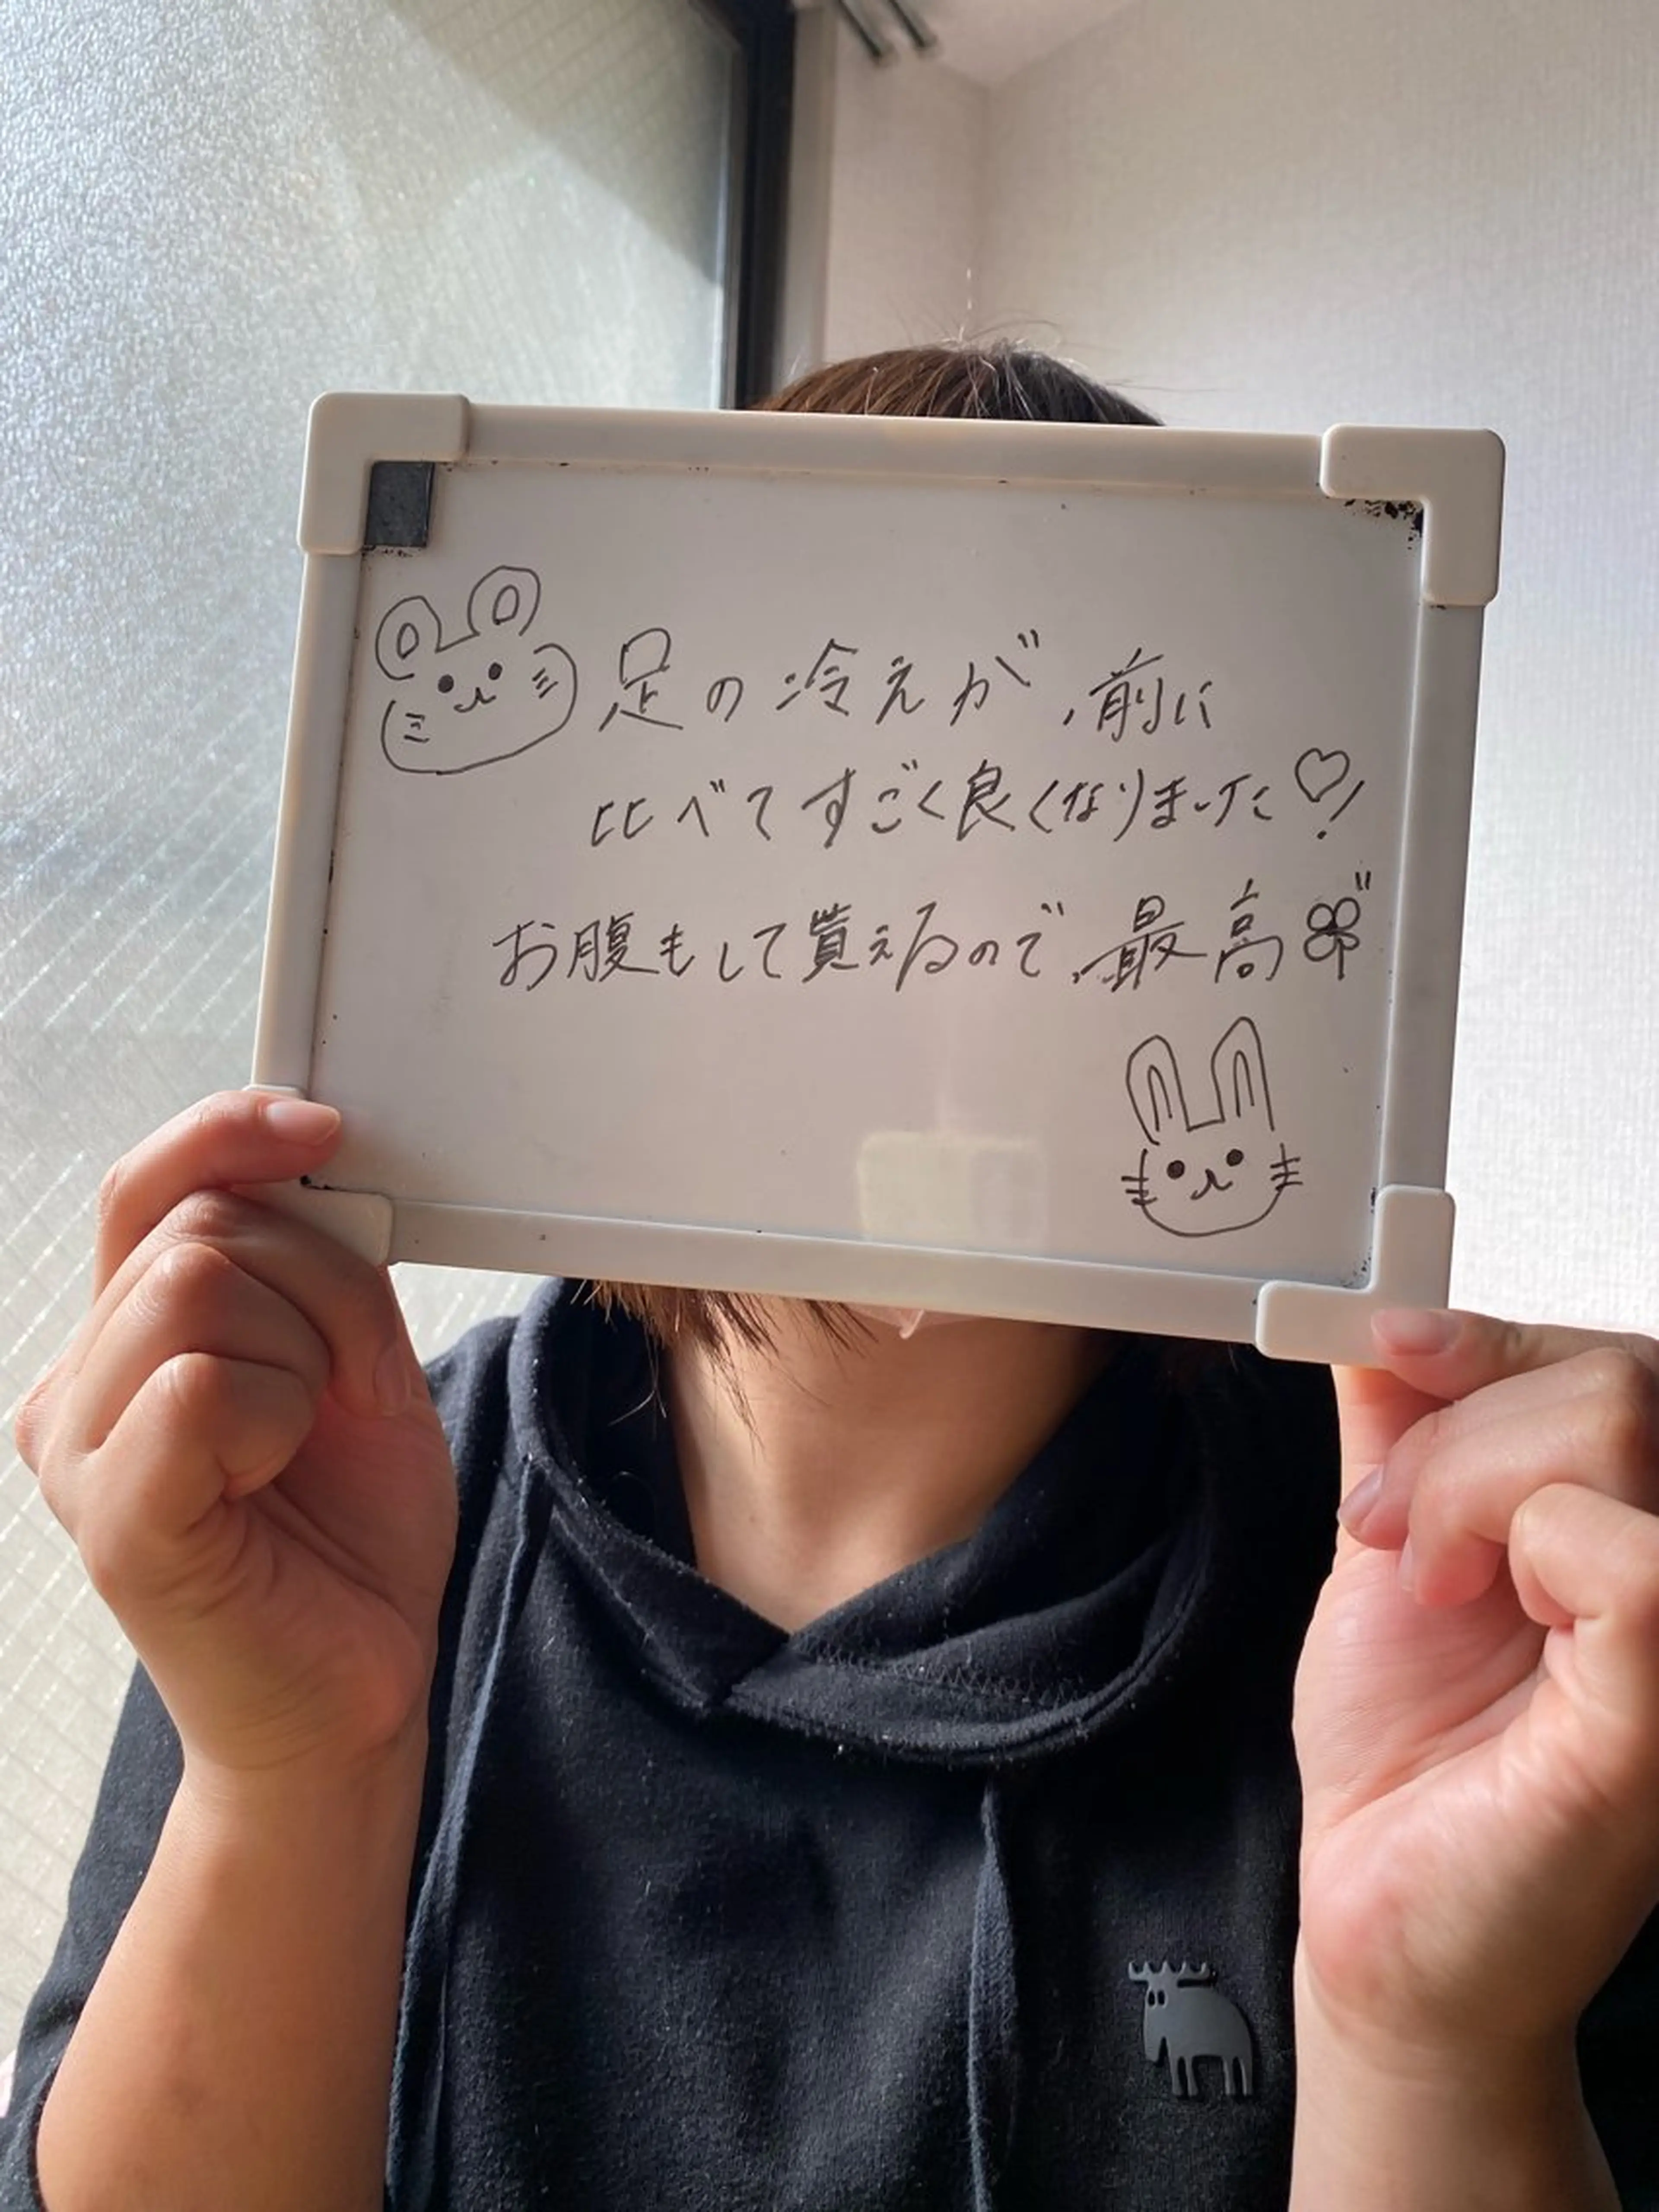 足の冷えが、前に
比べてすごく良くなりました♡!
お腹もして貰えるので、最高